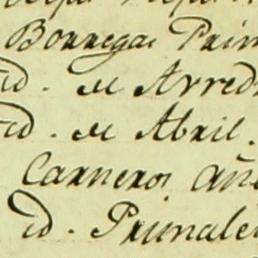 Borregas Prim
id. de Arred
id. de Abril.
Carneros añe
id. Primale